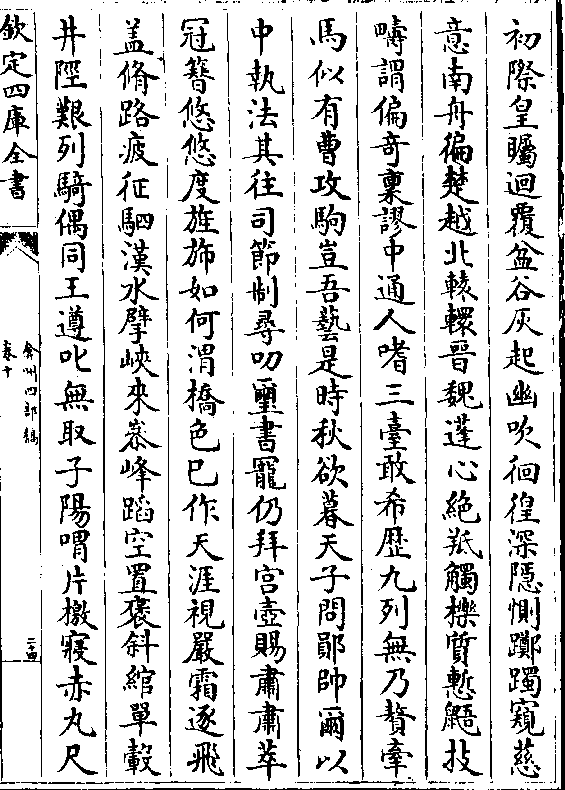 初際皇矚迴覆盆谷灰起幽吹徊徨深隱惻躑躅窺慈
意南舟徧楚越北轅轘晉魏蓬心絶羝觸櫟質慙鼯技
疇謂偏奇稟謬中通人嗜三臺敢希歴九列無乃贅牽
馬似有曹攻駒豈吾藝是時秋欲暮天子問鄖帥爾以
中執法其往司節制尋叨璽書寵仍拜宫壺賜肅肅萃
冠簪悠悠度旌斾如何渭橋色已作天涯視嚴霜逐飛
盖脩路疲征駟漢水擘峽來泰峰蹈空置褒斜綰單轂
井陘艱列騎偶同王遵叱無取子陽喟片檄寢赤丸尺
欽定四庫全書
弇州四部稿
卷十
二四